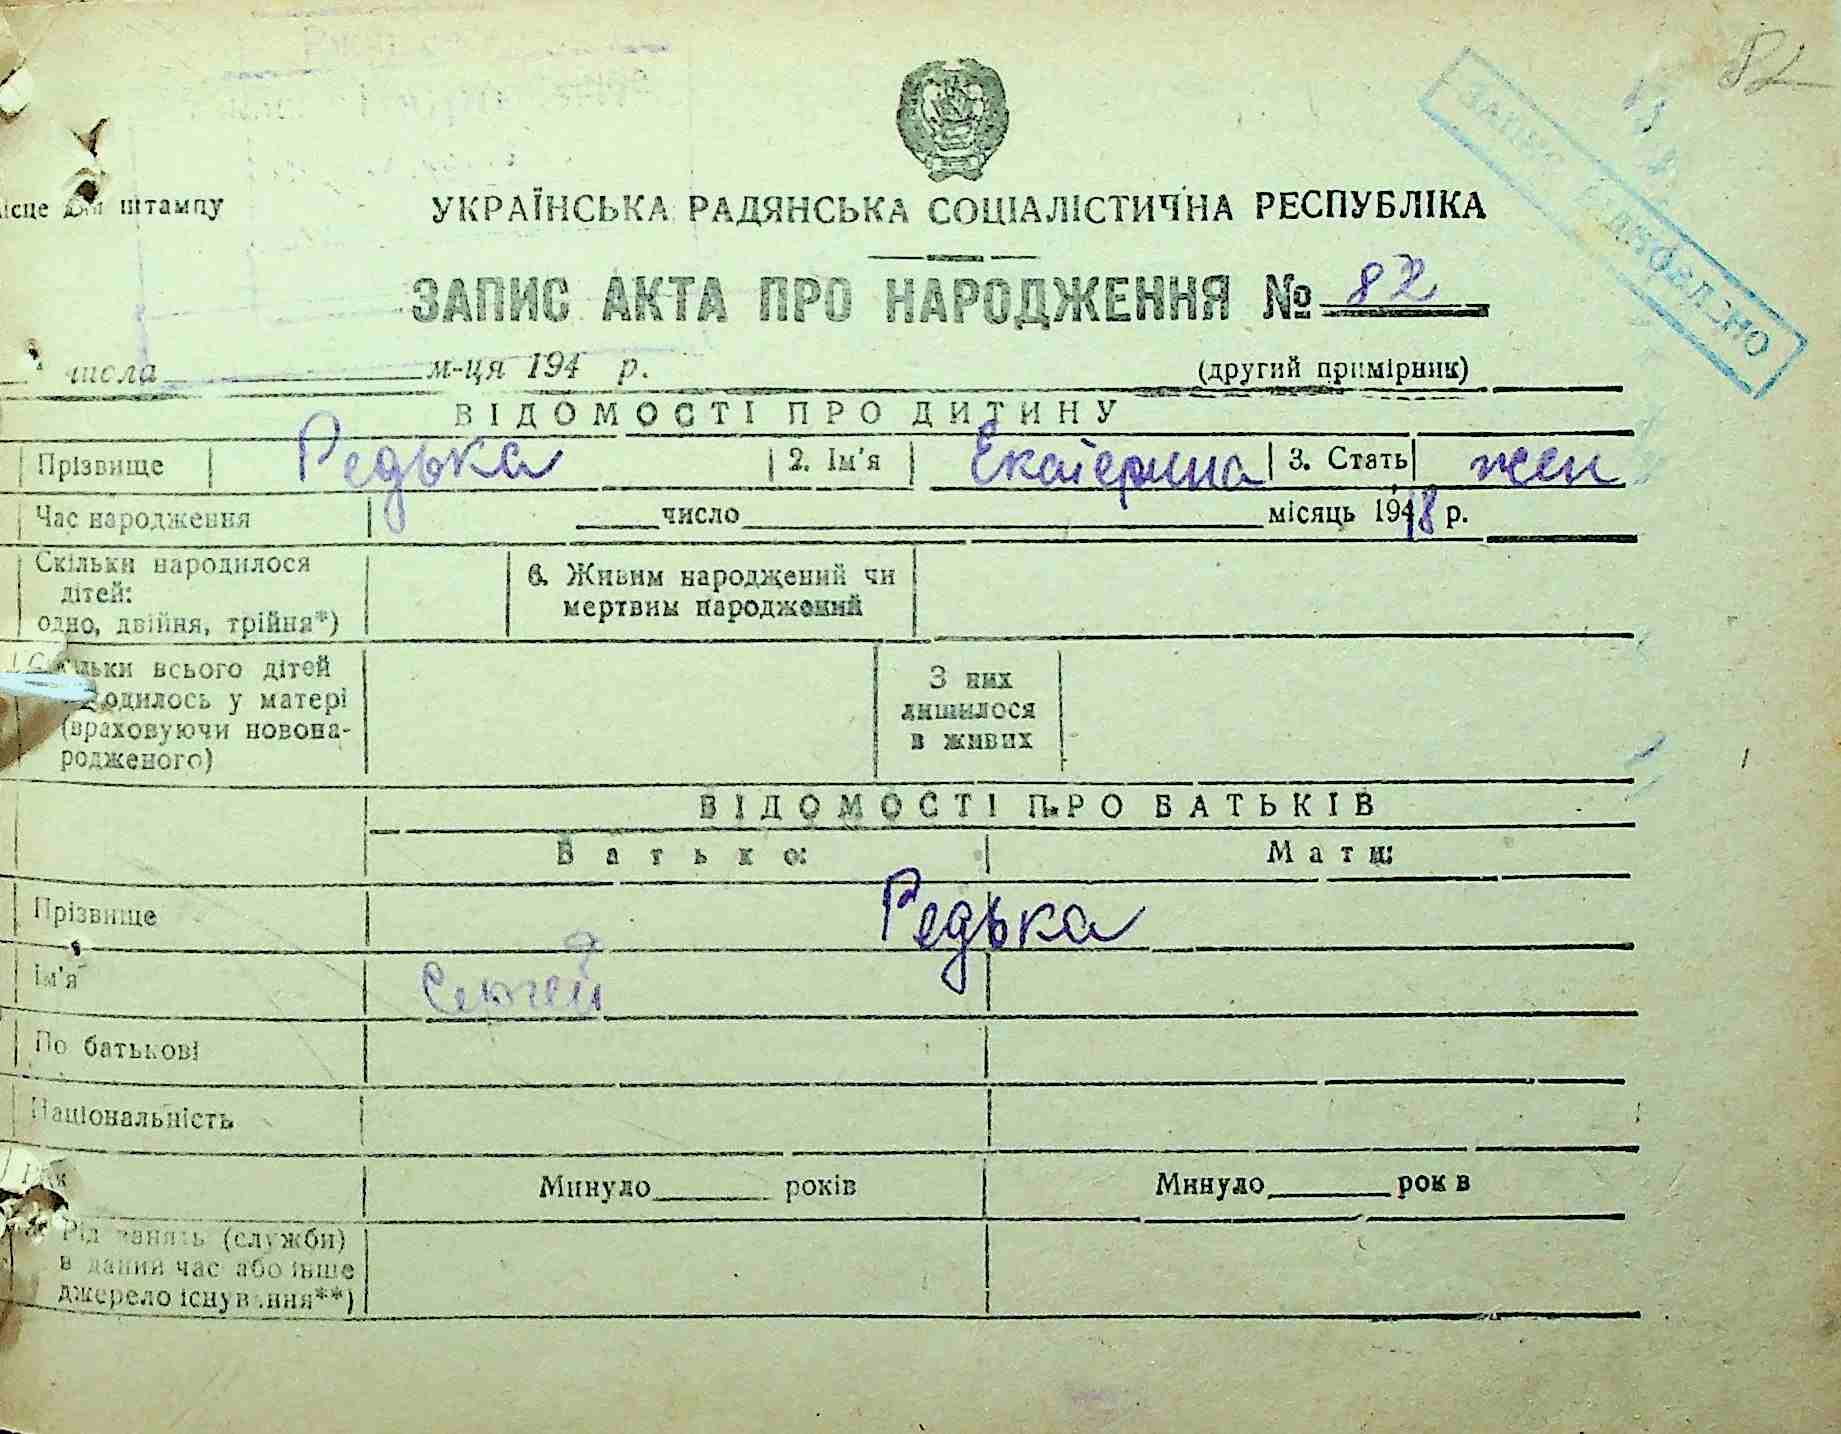 82
ЗАПИС ВІДНОВЛЕНО
для штампу
УКРАЇНСЬКА РАДЯНСЬКА СОЦІАЛІСТИЧНА РЕСПУБЛІКА
ЗАПИС АКТА ПРО НАРОДЖЕННЯ № 82
числа м-ця 194 р. (другий примірник)
ВІДОМОСТІ ПРО ДИТИНУ
Прізвище Редька 2. Ім'я Екатерина 3. Стать жен
Час народження число місяць 1918 р.
Скільки народилося
дітей:
одно, двійня, трійня*)
6. Живим народжений чи
мертвим народжений
всього дітей
у матері
(враховуючи новона-
родженого)
З них
лишилося
в живих
ВІДОМОСТІ ПРО БАТЬКІВ
Батько: Мати:
Прізвище Редька
Ім'я Сергей
По батькові
Національність
Минуло років Минуло років
Рід занять (служби)
в даний час або інше
джерело існування**)